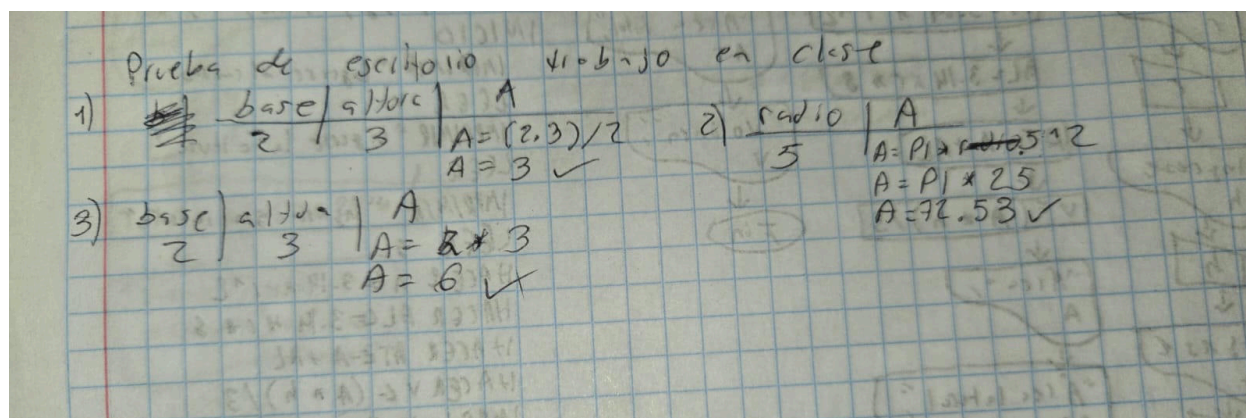 Prueba de escritorio trabajo en clase
1) base | altura | A
2 | 3 | A = (2.3)/2
A = 3 ✓
2) radio | A
5 | A = PI * 5^2
A = PI * 25
A = 72.53 ✓
3) base | altura | A
2 | 3 | A = 2 * 3
A = 6 ✓